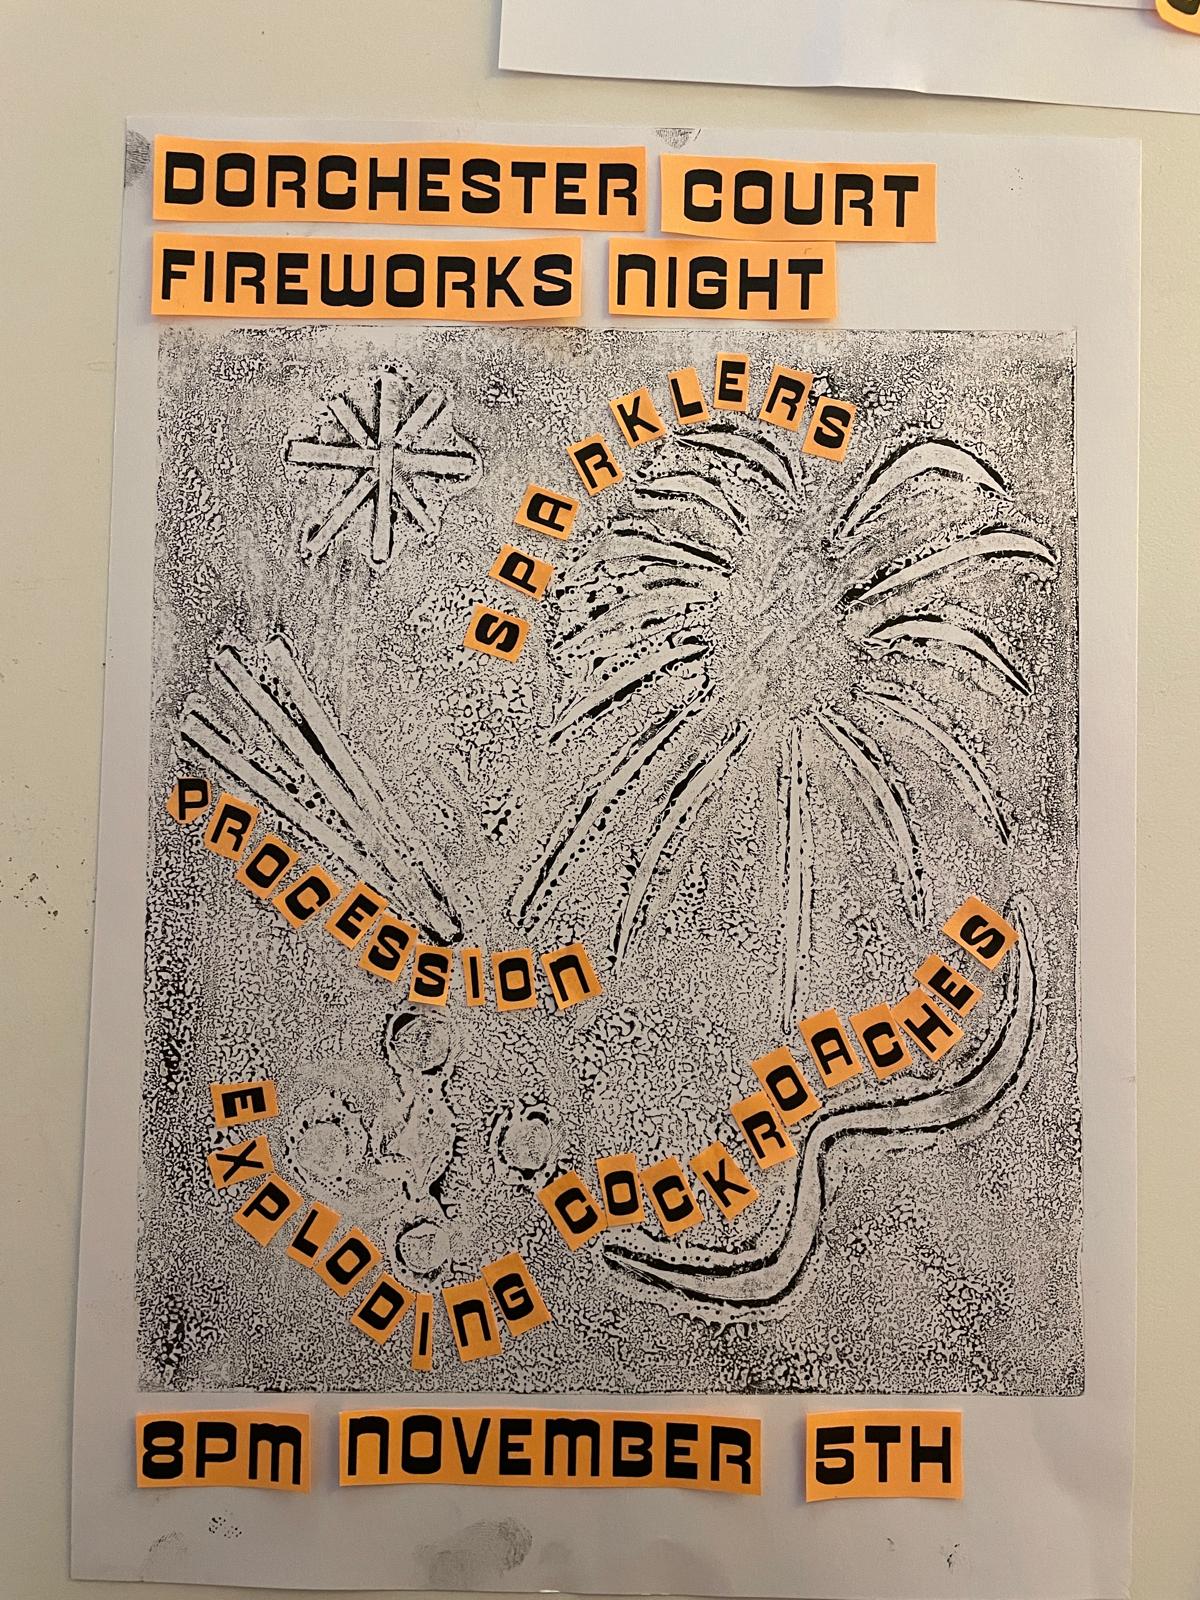 DORCHESTER COURT
FIREWORKS NIGHT
SPARKLERS
PROCESSION
EXPLODING COCKROACHES
8PM NOVEMBER 5TH